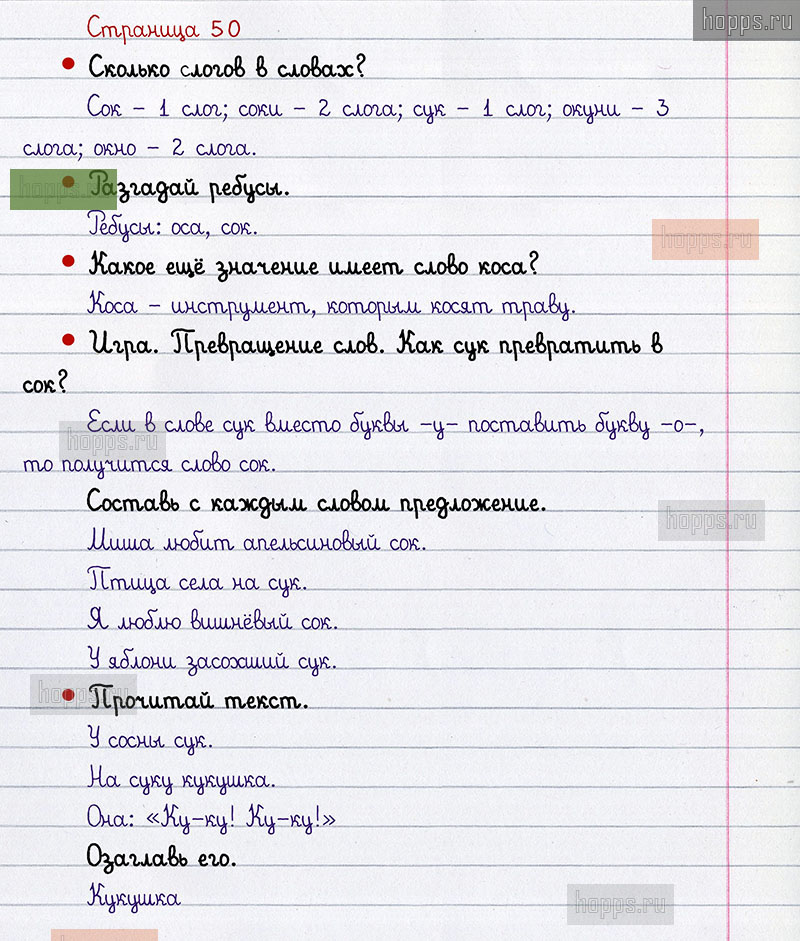 Страница 50
hopps.ru
• Сколько слогов в словах?
Сок – 1 слог; соки – 2 слога; сук – 1 слог; окуни – 3
слога; окно – 2 слога.
• Разгадай ребусы.
hopps.ru
Ребусы: оса, сок.
hopps.ru
• Какое ещё значение имеет слово коса?
Коса – инструмент, которым косят траву.
• Игра. Превращение слов. Как сук превратить в
сок?
Если в слове сук вместо буквы –у– поставить букву –о–,
hopps.ru
то получится слово сок.
Составь с каждым словом предложение.
hopps.ru
Миша любит апельсиновый сок.
Птица села на сук.
Я люблю вишнёвый сок.
У яблони засохший сук.
• Прочитай текст.
hopps.ru
У сосны сук.
На суку кукушка.
Она: «Ку-ку! Ку-ку!»
Озаглавь его.
Кукушка
hopps.ru